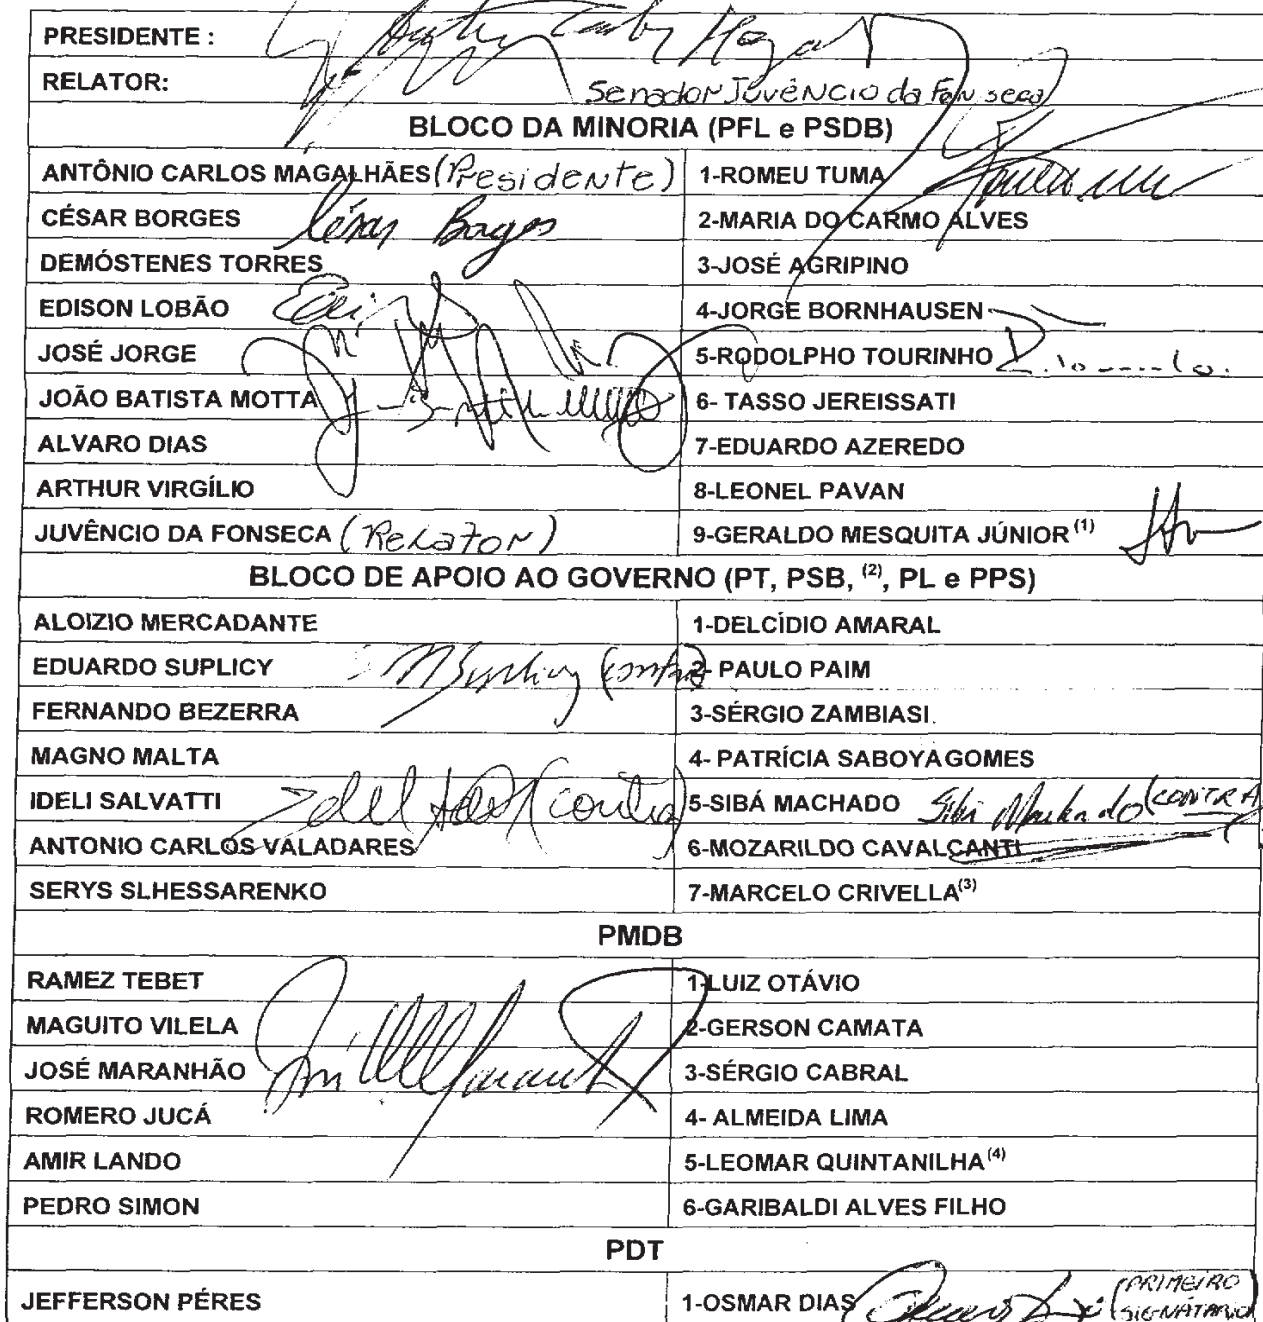 PRESIDENTE :
RELATOR: Senador Juvêncio da Fonseca
BLOCO DA MINORIA (PFL e PSDB)
ANTÔNIO CARLOS MAGALHÃES (Presidente) 1-ROMEU TUMA
CÉSAR BORGES César Borges 2-MARIA DO CARMO ALVES
DEMÓSTENES TORRES 3-JOSÉ AGRIPINO
EDISON LOBÃO 4-JORGE BORNHAUSEN
JOSÉ JORGE 5-RODOLPHO TOURINHO
JOÃO BATISTA MOTTA 6- TASSO JEREISSATI
ALVARO DIAS 7-EDUARDO AZEREDO
ARTHUR VIRGÍLIO 8-LEONEL PAVAN
JUVÊNCIO DA FONSECA (Relator) 9-GERALDO MESQUITA JÚNIOR (1)
BLOCO DE APOIO AO GOVERNO (PT, PSB, (2), PL e PPS)
ALOIZIO MERCADANTE 1-DELCÍDIO AMARAL
EDUARDO SUPLICY Suplicy (contra) 2- PAULO PAIM
FERNANDO BEZERRA 3-SÉRGIO ZAMBIASI
MAGNO MALTA 4- PATRÍCIA SABOYA GOMES
IDELI SALVATTI (contra) 5-SIBÁ MACHADO Sibá Machado (CONTRA)
ANTONIO CARLOS VALADARES 6-MOZARILDO CAVALCANTI
SERYS SLHESSARENKO 7-MARCELO CRIVELLA (3)
PMDB
RAMEZ TEBET 1-LUIZ OTÁVIO
MAGUITO VILELA 2-GERSON CAMATA
JOSÉ MARANHÃO 3-SÉRGIO CABRAL
ROMERO JUCÁ 4- ALMEIDA LIMA
AMIR LANDO 5-LEOMAR QUINTANILHA (4)
PEDRO SIMON 6-GARIBALDI ALVES FILHO
PDT
JEFFERSON PÉRES 1-OSMAR DIAS (PRIMEIRO SIGNATÁRIO)